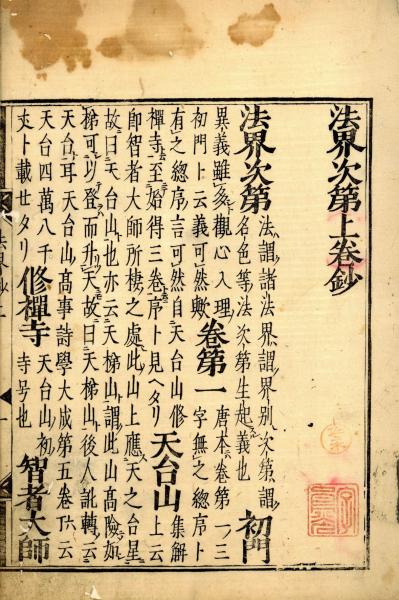 法界次第上卷鈔
法界次第
法謂諸法界謂界別次第謂
名色等法次第生起義也
初門
異義雖多觀心入理
初門卜云義可然歟
卷第一
唐本卷第一三
字無之總序卜
有之總序言可然自天台山修
禪寺至始得三卷序卜見ヘタリ
天台山
集解
上云
即智者大師所棲之處此山上應天之台星
故曰天台山也亦云天梯山謂此山高險如
梯可以登而升天故曰天梯山後人訛轉云
天台耳天台山高事詩學大成第五卷云
天台四萬八千
丈卜載セタリ
修禪寺
天台山初
寺号也
智者大師